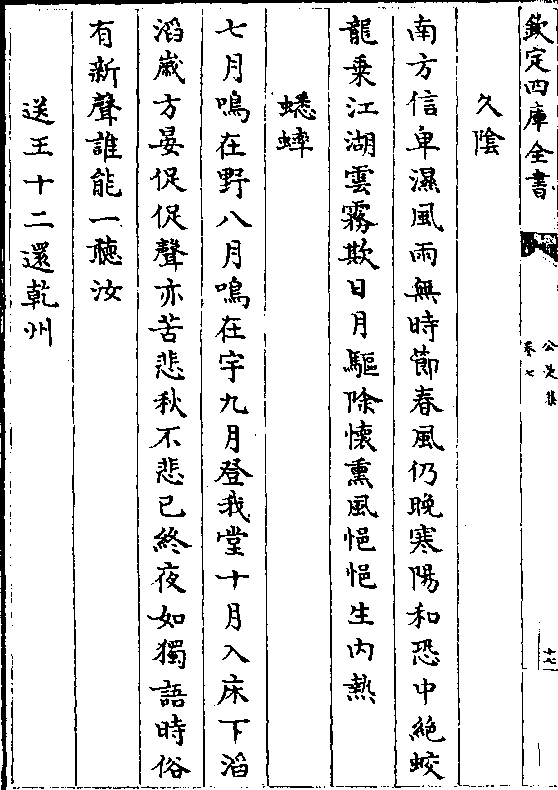 欽定四庫全書
公是集
卷七
十七
久陰
南方信卑濕風雨無時節春風仍晚寒陽和恐中絶蛟
龍乗江湖雲霧欺日月驅除懷熏風悒悒生内熱
蟋蟀
七月鳴在野八月鳴在宇九月登我堂十月入床下滔
滔嵗方晏促促聲亦苦悲秋不悲已終夜如獨語時俗
有新聲誰能一聽汝
送王十二還乾州